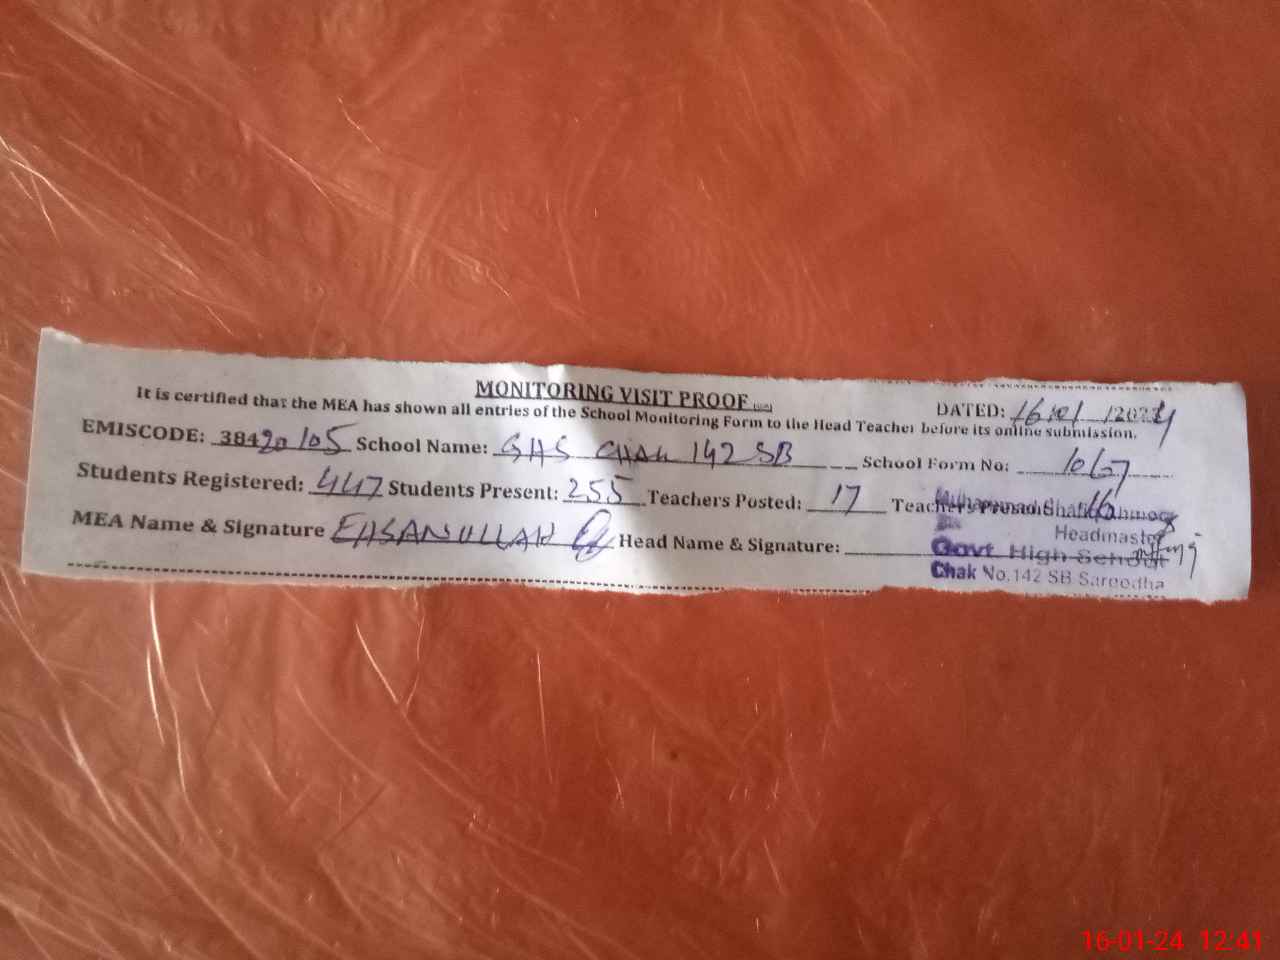 MONITORING VISIT PROOF
DATED: 16/01/2024
It is certified that the MEA has shown all entries of the School Monitoring Form to the Head Teacher before its online submission.
EMISCODE: 38420105 School Name: GHS CHAK 142 SB School Form No: 1067
Students Registered: 447 Students Present: 255 Teachers Posted: 17 Teachers Present: 16
MEA Name & Signature EHSANULLAH Head Name & Signature:
Muhammad Shafiq Ahmed
Headmaster
Govt. High School
Chak No.142 SB Sargodha
16-01-24 12:41